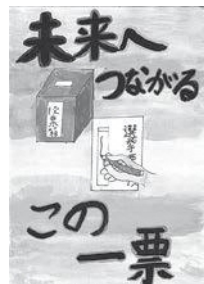 未来へ
つながる
投票箱
この
一票